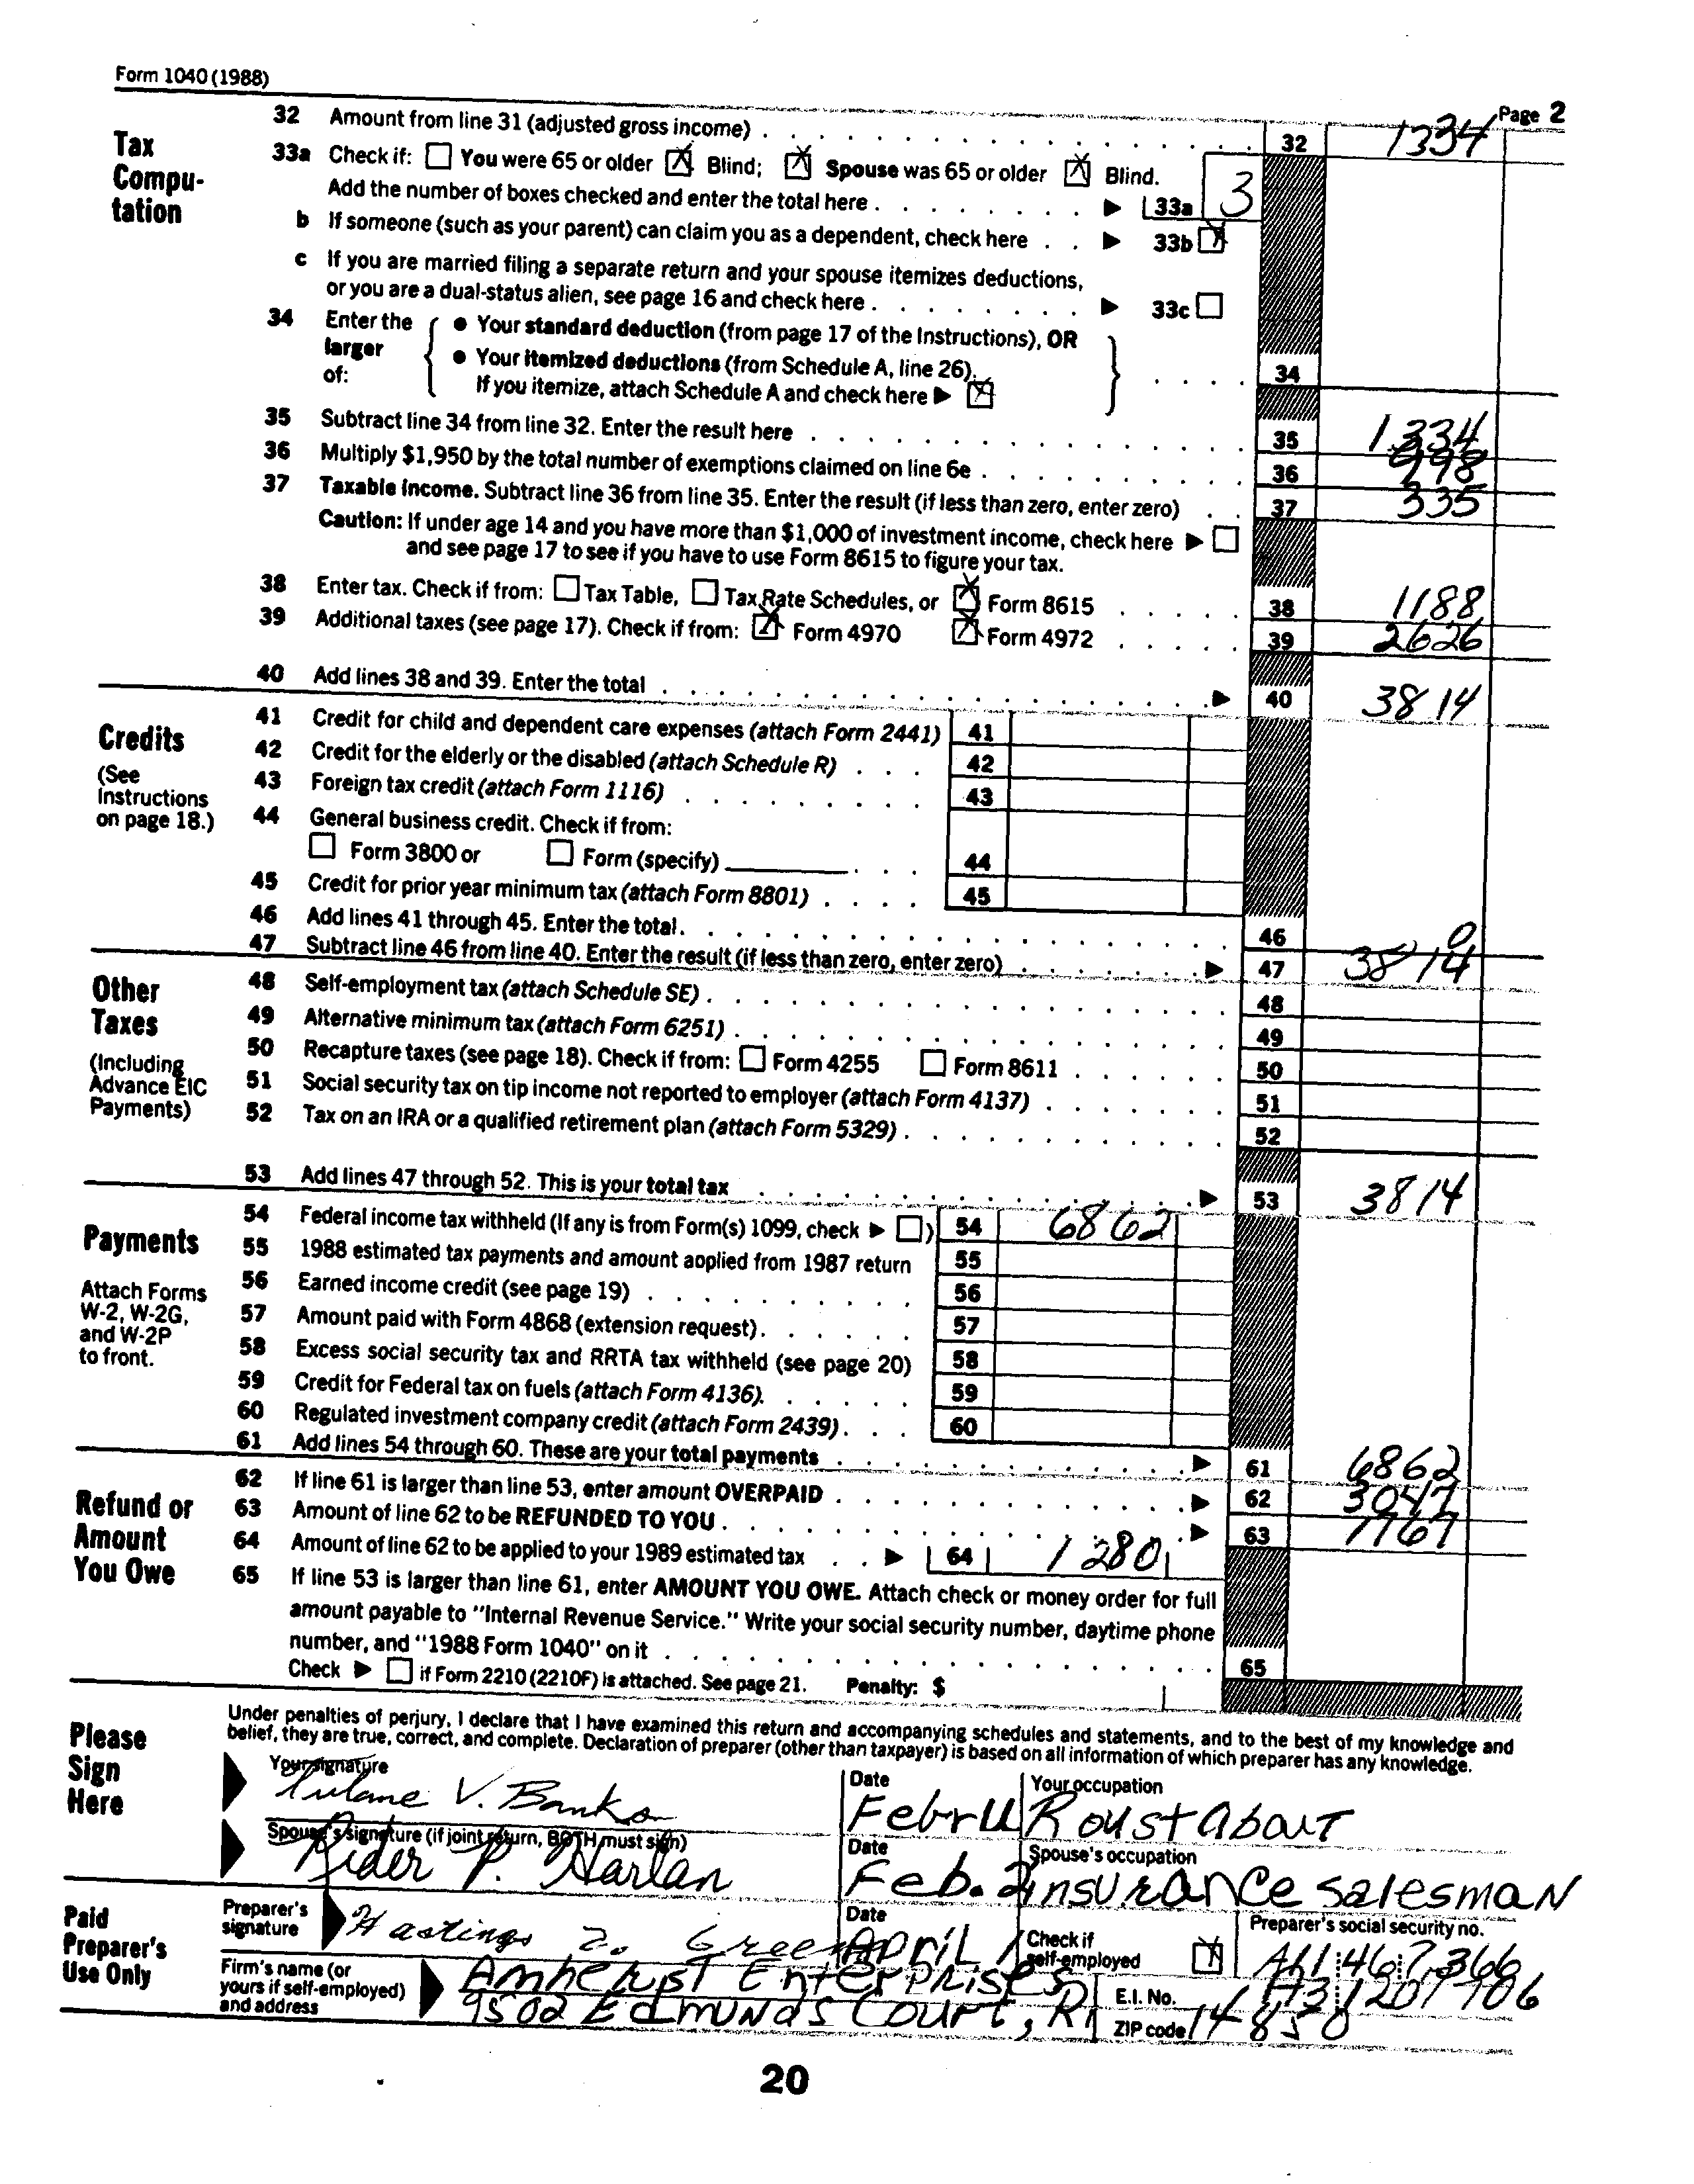 Form 1040 (1988)
Page 2
Tax Compu-tation
32 Amount from line 31 (adjusted gross income) . . . 32 1334
33a Check if: You were 65 or older X Blind; X Spouse was 65 or older X Blind.
Add the number of boxes checked and enter the total here . . . 33a 3
b If someone (such as your parent) can claim you as a dependent, check here . . 33b X
c If you are married filing a separate return and your spouse itemizes deductions,
or you are a dual-status alien, see page 16 and check here . . . 33c
34 Enter the larger of:
• Your standard deduction (from page 17 of the Instructions), OR
• Your itemized deductions (from Schedule A, line 26).
If you itemize, attach Schedule A and check here X . . . . 34
35 Subtract line 34 from line 32. Enter the result here . . . 35 1334
36 Multiply $1,950 by the total number of exemptions claimed on line 6e . . . 36
37 Taxable income. Subtract line 36 from line 35. Enter the result (if less than zero, enter zero) . . 37 335
Caution: If under age 14 and you have more than $1,000 of investment income, check here
and see page 17 to see if you have to use Form 8615 to figure your tax.
38 Enter tax. Check if from: Tax Table, Tax Rate Schedules, or X Form 8615 . . . 38 1188
39 Additional taxes (see page 17). Check if from: X Form 4970 X Form 4972 . . . 39 2626
40 Add lines 38 and 39. Enter the total . . . 40 3814
Credits
(See Instructions on page 18.)
41 Credit for child and dependent care expenses (attach Form 2441) 41
42 Credit for the elderly or the disabled (attach Schedule R) . . . 42
43 Foreign tax credit (attach Form 1116) . . . 43
44 General business credit. Check if from:
Form 3800 or Form (specify) . . . 44
45 Credit for prior year minimum tax (attach Form 8801) . . . . 45
46 Add lines 41 through 45. Enter the total. . . . 46 0
47 Subtract line 46 from line 40. Enter the result (if less than zero, enter zero) . . . 47 3814
Other Taxes
(Including Advance EIC Payments)
48 Self-employment tax (attach Schedule SE) . . . 48
49 Alternative minimum tax (attach Form 6251) . . . 49
50 Recapture taxes (see page 18). Check if from: Form 4255 Form 8611 . . . 50
51 Social security tax on tip income not reported to employer (attach Form 4137) . . . 51
52 Tax on an IRA or a qualified retirement plan (attach Form 5329) . . . 52
53 Add lines 47 through 52. This is your total tax . . . 53 3814
Payments
Attach Forms W-2, W-2G, and W-2P to front.
54 Federal income tax withheld (If any is from Form(s) 1099, check ) 54 6862
55 1988 estimated tax payments and amount applied from 1987 return 55
56 Earned income credit (see page 19) . . . 56
57 Amount paid with Form 4868 (extension request). . . . 57
58 Excess social security tax and RRTA tax withheld (see page 20) 58
59 Credit for Federal tax on fuels (attach Form 4136). . . . 59
60 Regulated investment company credit (attach Form 2439) . . . 60
61 Add lines 54 through 60. These are your total payments . . . 61 6862
Refund or Amount You Owe
62 If line 61 is larger than line 53, enter amount OVERPAID . . . 62 3047
63 Amount of line 62 to be REFUNDED TO YOU . . . 63 1767
64 Amount of line 62 to be applied to your 1989 estimated tax . . 64 1280
65 If line 53 is larger than line 61, enter AMOUNT YOU OWE. Attach check or money order for full
amount payable to "Internal Revenue Service." Write your social security number, daytime phone
number, and "1988 Form 1040" on it . . . 65
Check if Form 2210 (2210F) is attached. See page 21. Penalty: $
Please Sign Here
Under penalties of perjury, I declare that I have examined this return and accompanying schedules and statements, and to the best of my knowledge and
belief, they are true, correct, and complete. Declaration of preparer (other than taxpayer) is based on all information of which preparer has any knowledge.
Your signature Date Your occupation
Tulane V. Banks Febru Roustabout
Spouse's signature (if joint return, BOTH must sign) Date Spouse's occupation
Rider P. Harlan Feb. 2 insurance salesman
Paid Preparer's Use Only
Preparer's signature Date Check if self-employed X Preparer's social security no.
Hastings Z. Gree April 1 46
Firm's name (or yours if self-employed) and address
Amherst Enterprises E.I. No.
9502 Edmunds Court, Ri ZIP code 14850
20